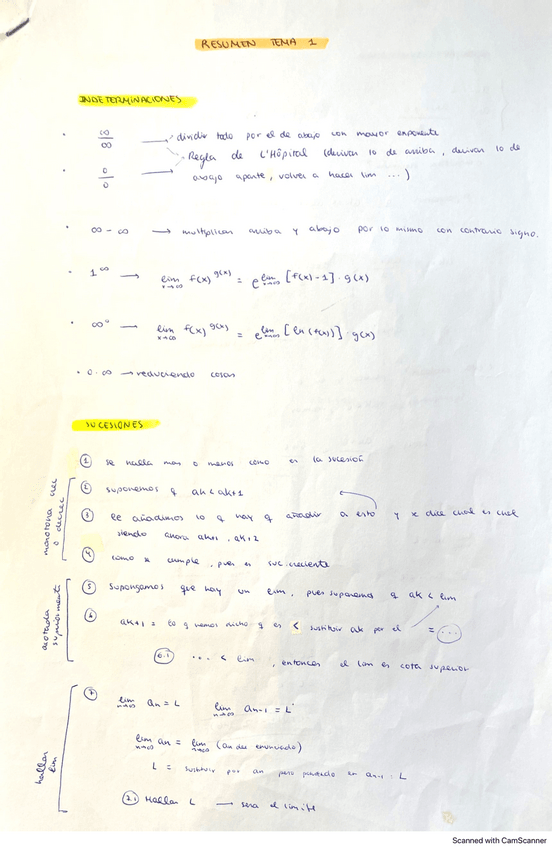 RESUMEN TEMA 1
INDETERMINACIONES
· ∞/∞ → dividir todo por el de abajo con mayor exponente
· 0/0 → Regla de L'Hôpital (derivar lo de arriba, derivar lo de
abajo aparte, volver a hacer lim ...)
· ∞ - ∞ → multiplicar arriba y abajo por lo mismo con contrario signo.
· 1^∞ → lim x→∞ f(x)^g(x) = e^lim x→∞ [f(x)-1] · g(x)
· ∞° → lim x→∞ f(x)^g(x) = e^lim x→∞ [ln(f(x))] · g(x)
· 0·∞ → reduciendo cosas
SUCESIONES
① se halla mas o menos como es la sucesión
monotona crec o decrec
② suponemos q ak < ak+1
③ le añadimos lo q hay q añadir a esto y x dice cual es cual
siendo ahora ak+1, ak+2
④ como x cumple, pues es suc. creciente
acotada superiormente
⑤ supongamos que hay un lim, pues suponemos q ak < lim
⑥ ak+1 = lo q hemos dicho q es < sustituir ak por el = ...
6.1 ... < lim, entonces el lim es cota superior
hallar lim
⑦ lim n→∞ an = L lim n→∞ an-1 = L
lim n→∞ an = lim n→∞ (an del enunciado)
L = sustituir por an pero an-1 = L
7.1 Hallar L → será el límite
Scanned with CamScanner